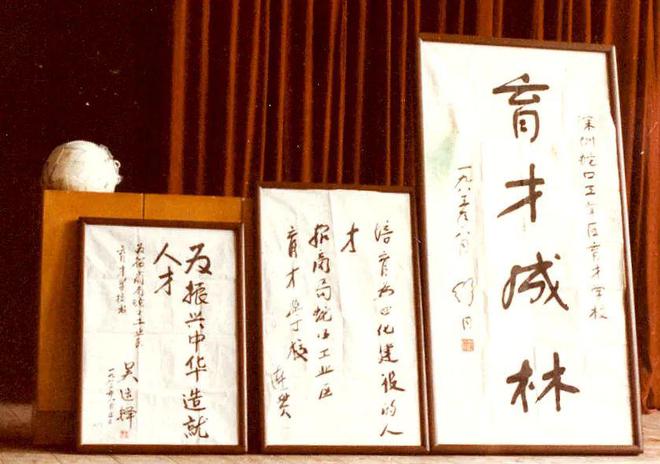 为振兴中华造就
人才
为招商局蛇口工业区
育才学校
吴运铎
培育四化建设的人
才
招商局蛇口工业区
育才学校
深圳蛇口工业区育才学校
育才成林
舒同